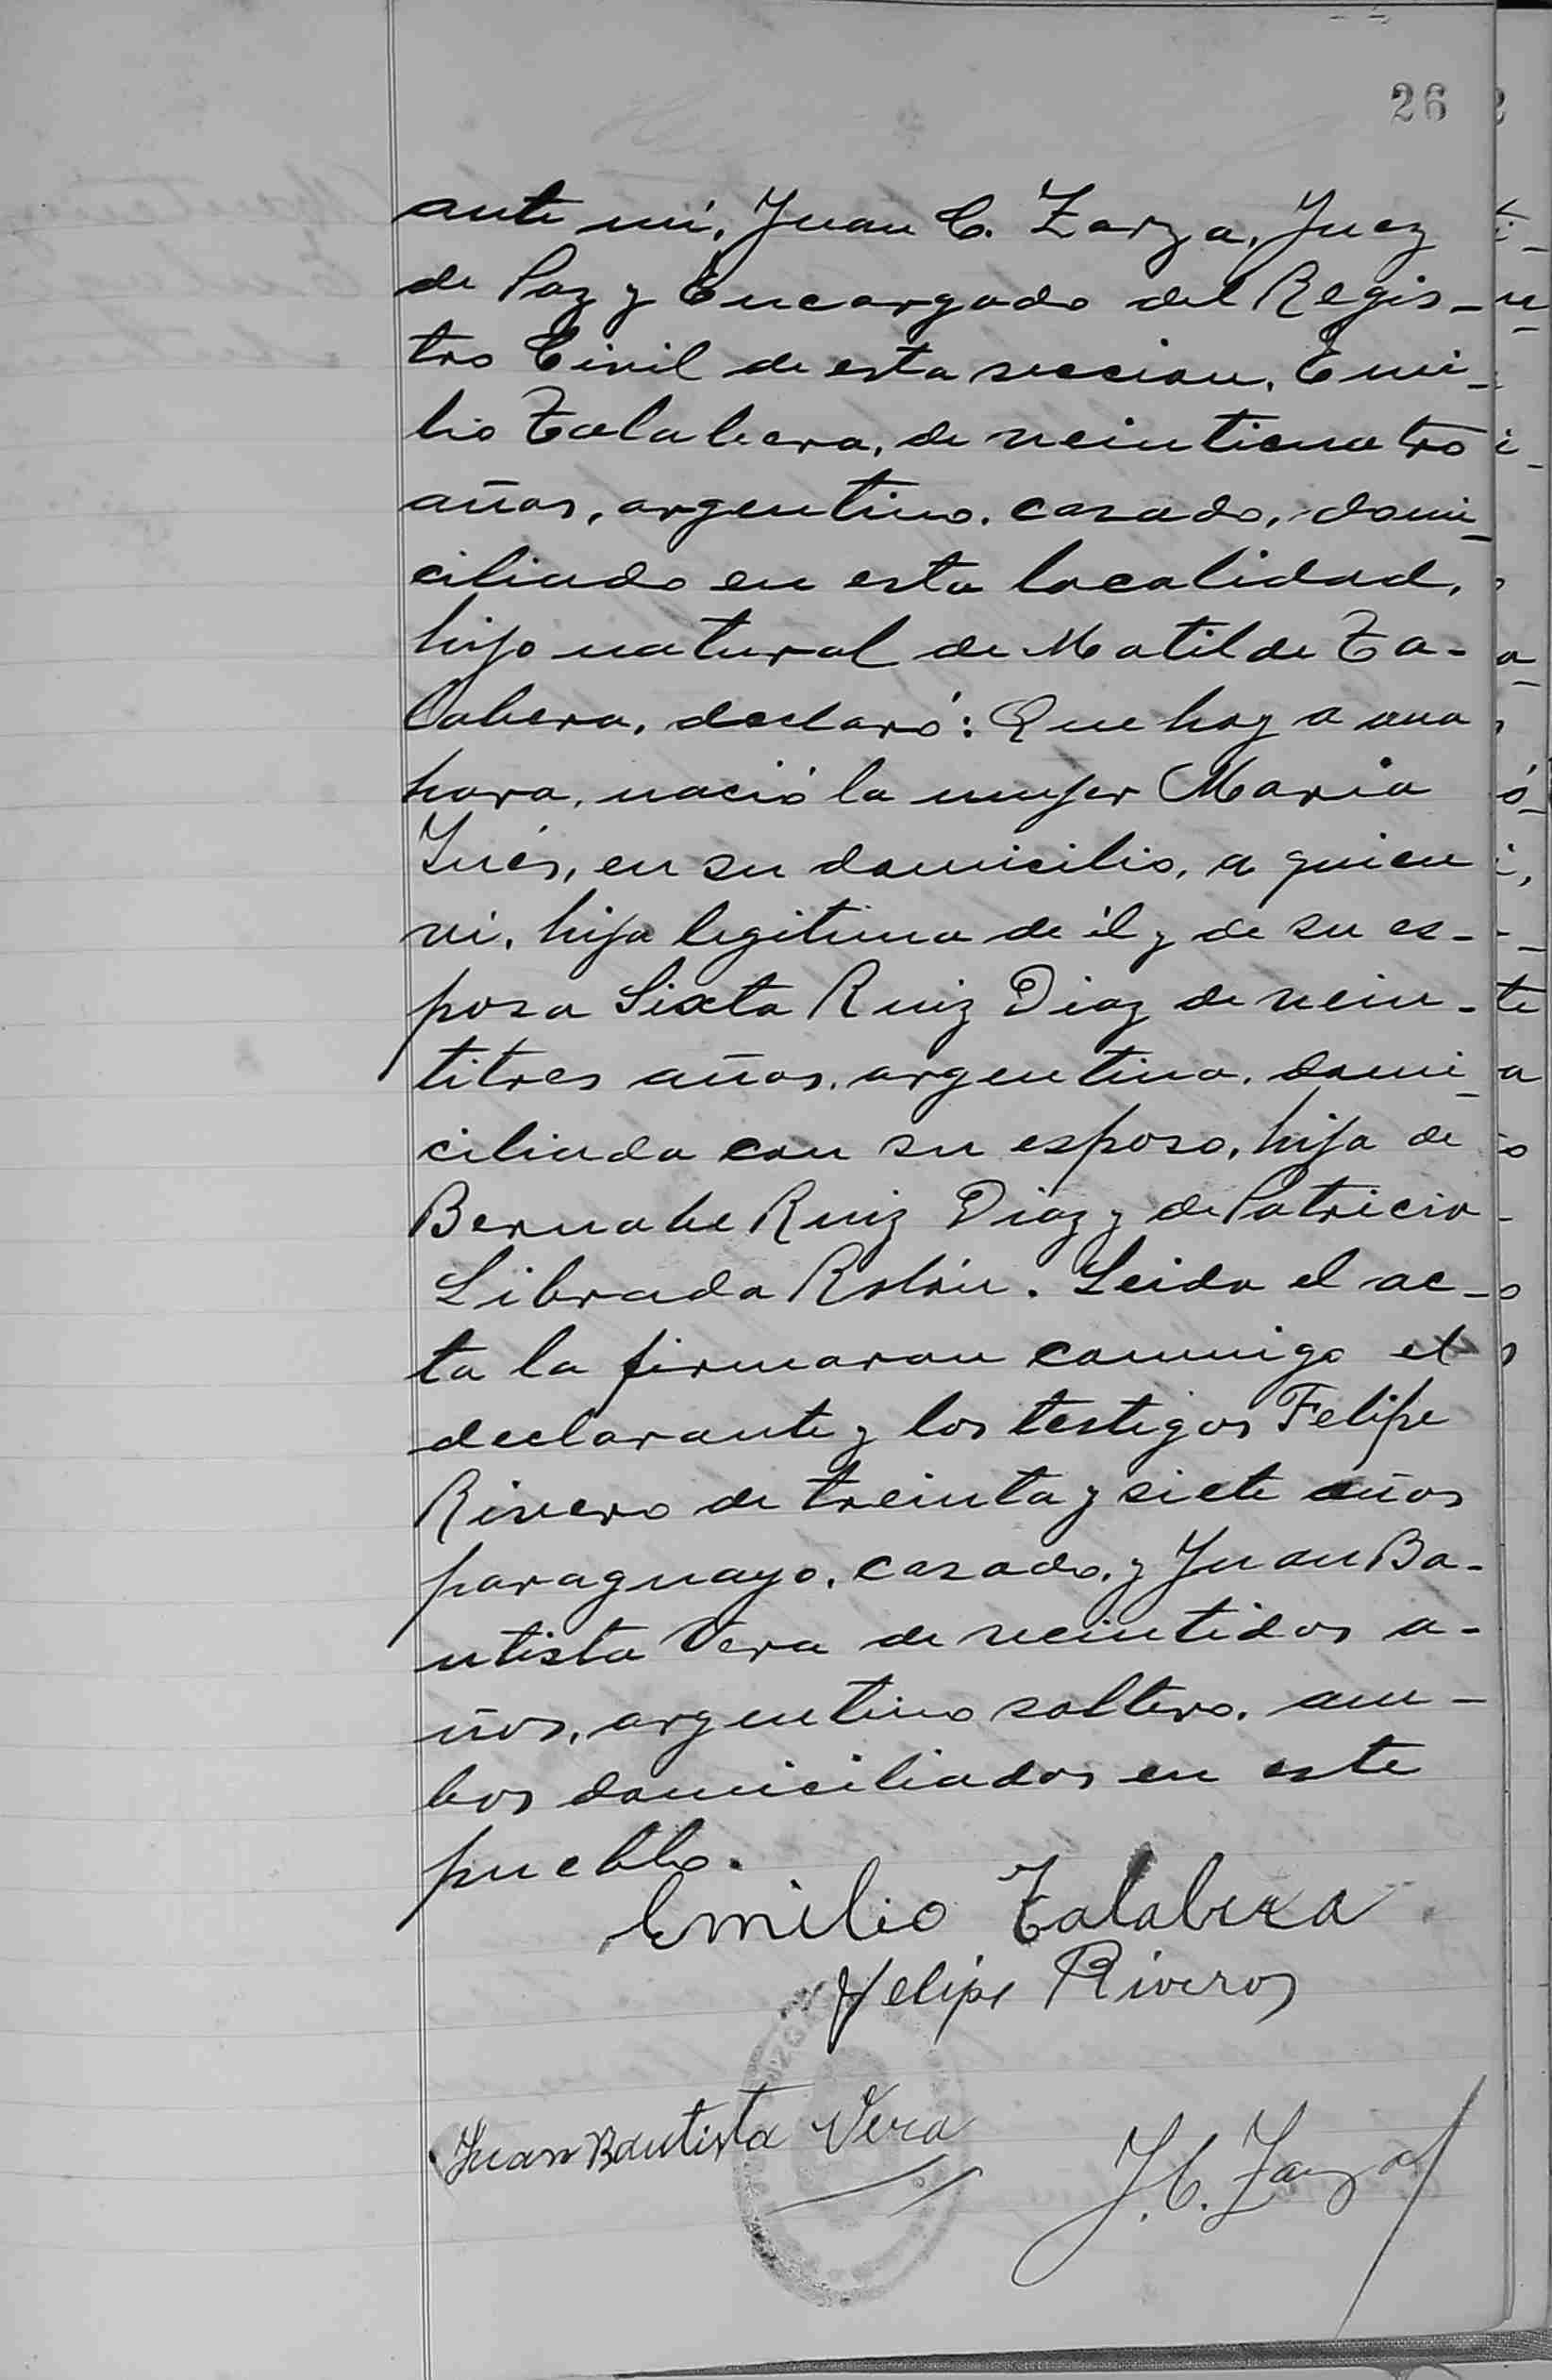 26
ante mí, Juan C. Zarza, Juez
de Paz y Encargado del Regis-
tro Civil de esta seccion, Emi-
lio Talabera, de veinticuatro
años, argentino, casado, domi-
ciliado en esta localidad,
hijo natural de Matilde Ta-
labera, declaró: Que hoy a una
hora, nació la mujer Maria
Inés, en su domicilio, a quien
vi, hija legitima de él y de su es-
posa Sixta Ruiz Diaz de vein-
titres años, argentina, domi-
ciliada con su esposo, hija de
Bernabe Ruiz Diaz y de Patricia
Librada Rolón. Leida el ac-
ta la firmaron conmigo el
declarante y los testigos Felipe
Rivero de treinta y siete años
paraguayo, casado, y Juan Ba-
utista Vera de veintidos a-
ños, argentino soltero, am-
bos domiciliados en este
pueblo.
Emilio Talabera
Felipe Riveros
Juan Bautista Vera
J. C. Zarza